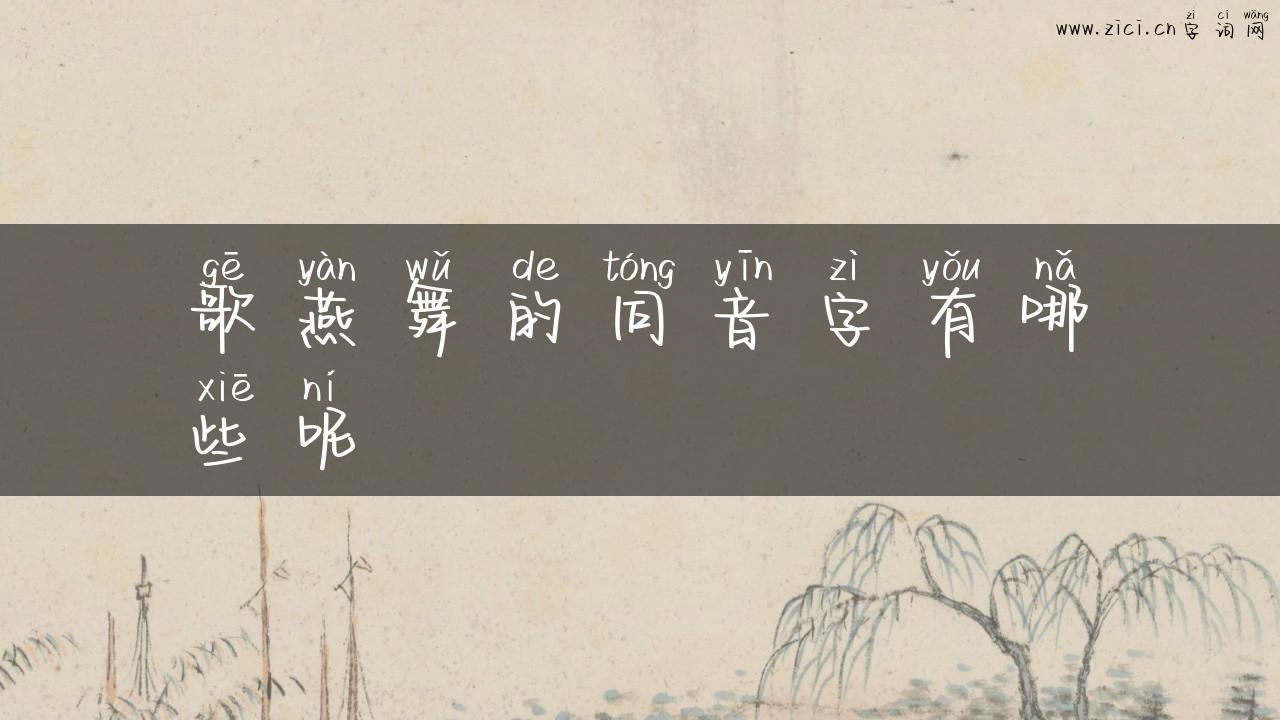 zì cí wǎng
www.zici.cn 字词网
gē yàn wǔ de tóng yīn zì yǒu nǎ
歌燕舞的同音字有哪
xiē ní
些呢